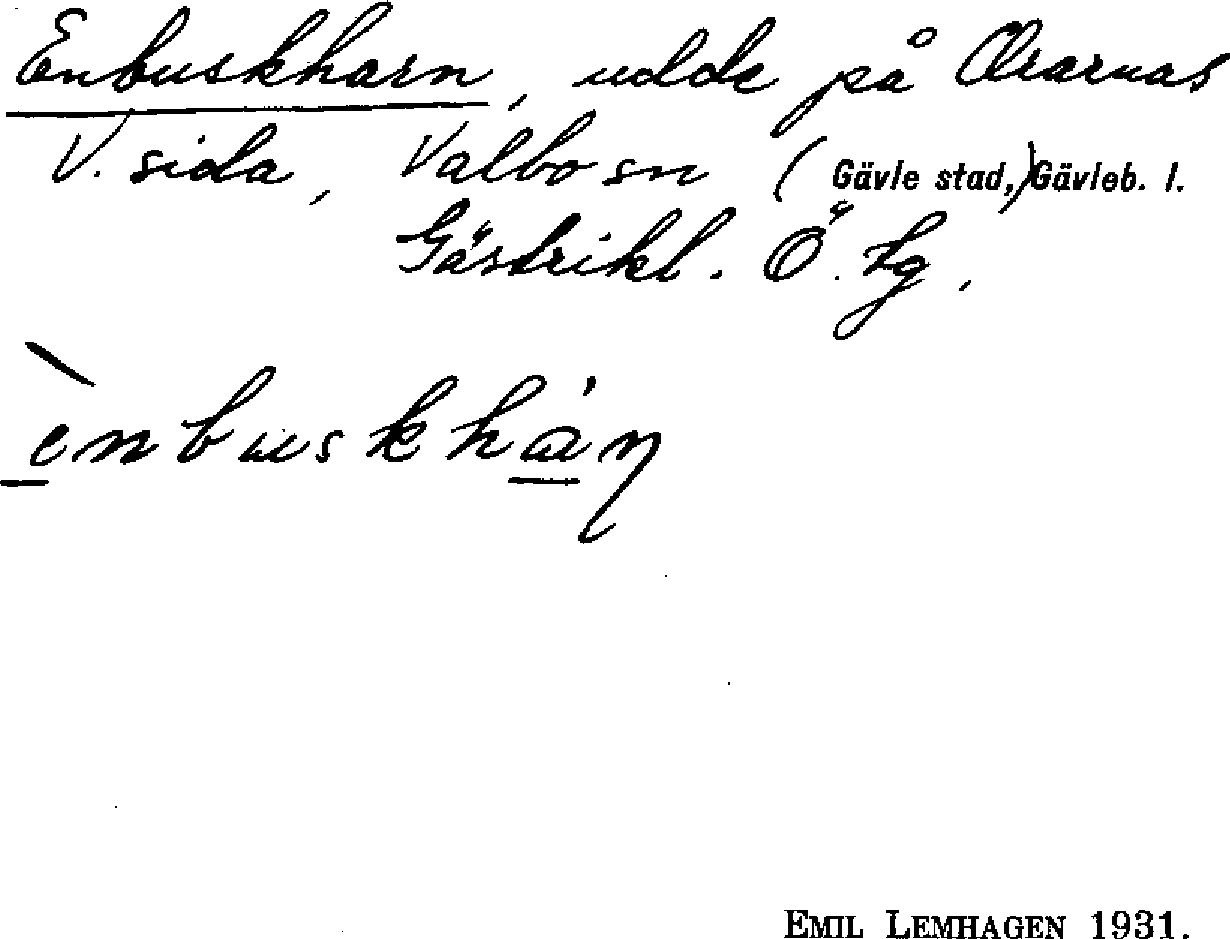 Enbuskharn, udde på Orarnas
V. sida, Valbo sn (Gävle stad,) Gävleb. l.
Gästrikl. Ö. tg.
ènbuskháɳ
EMIL LEMHAGEN 1931.